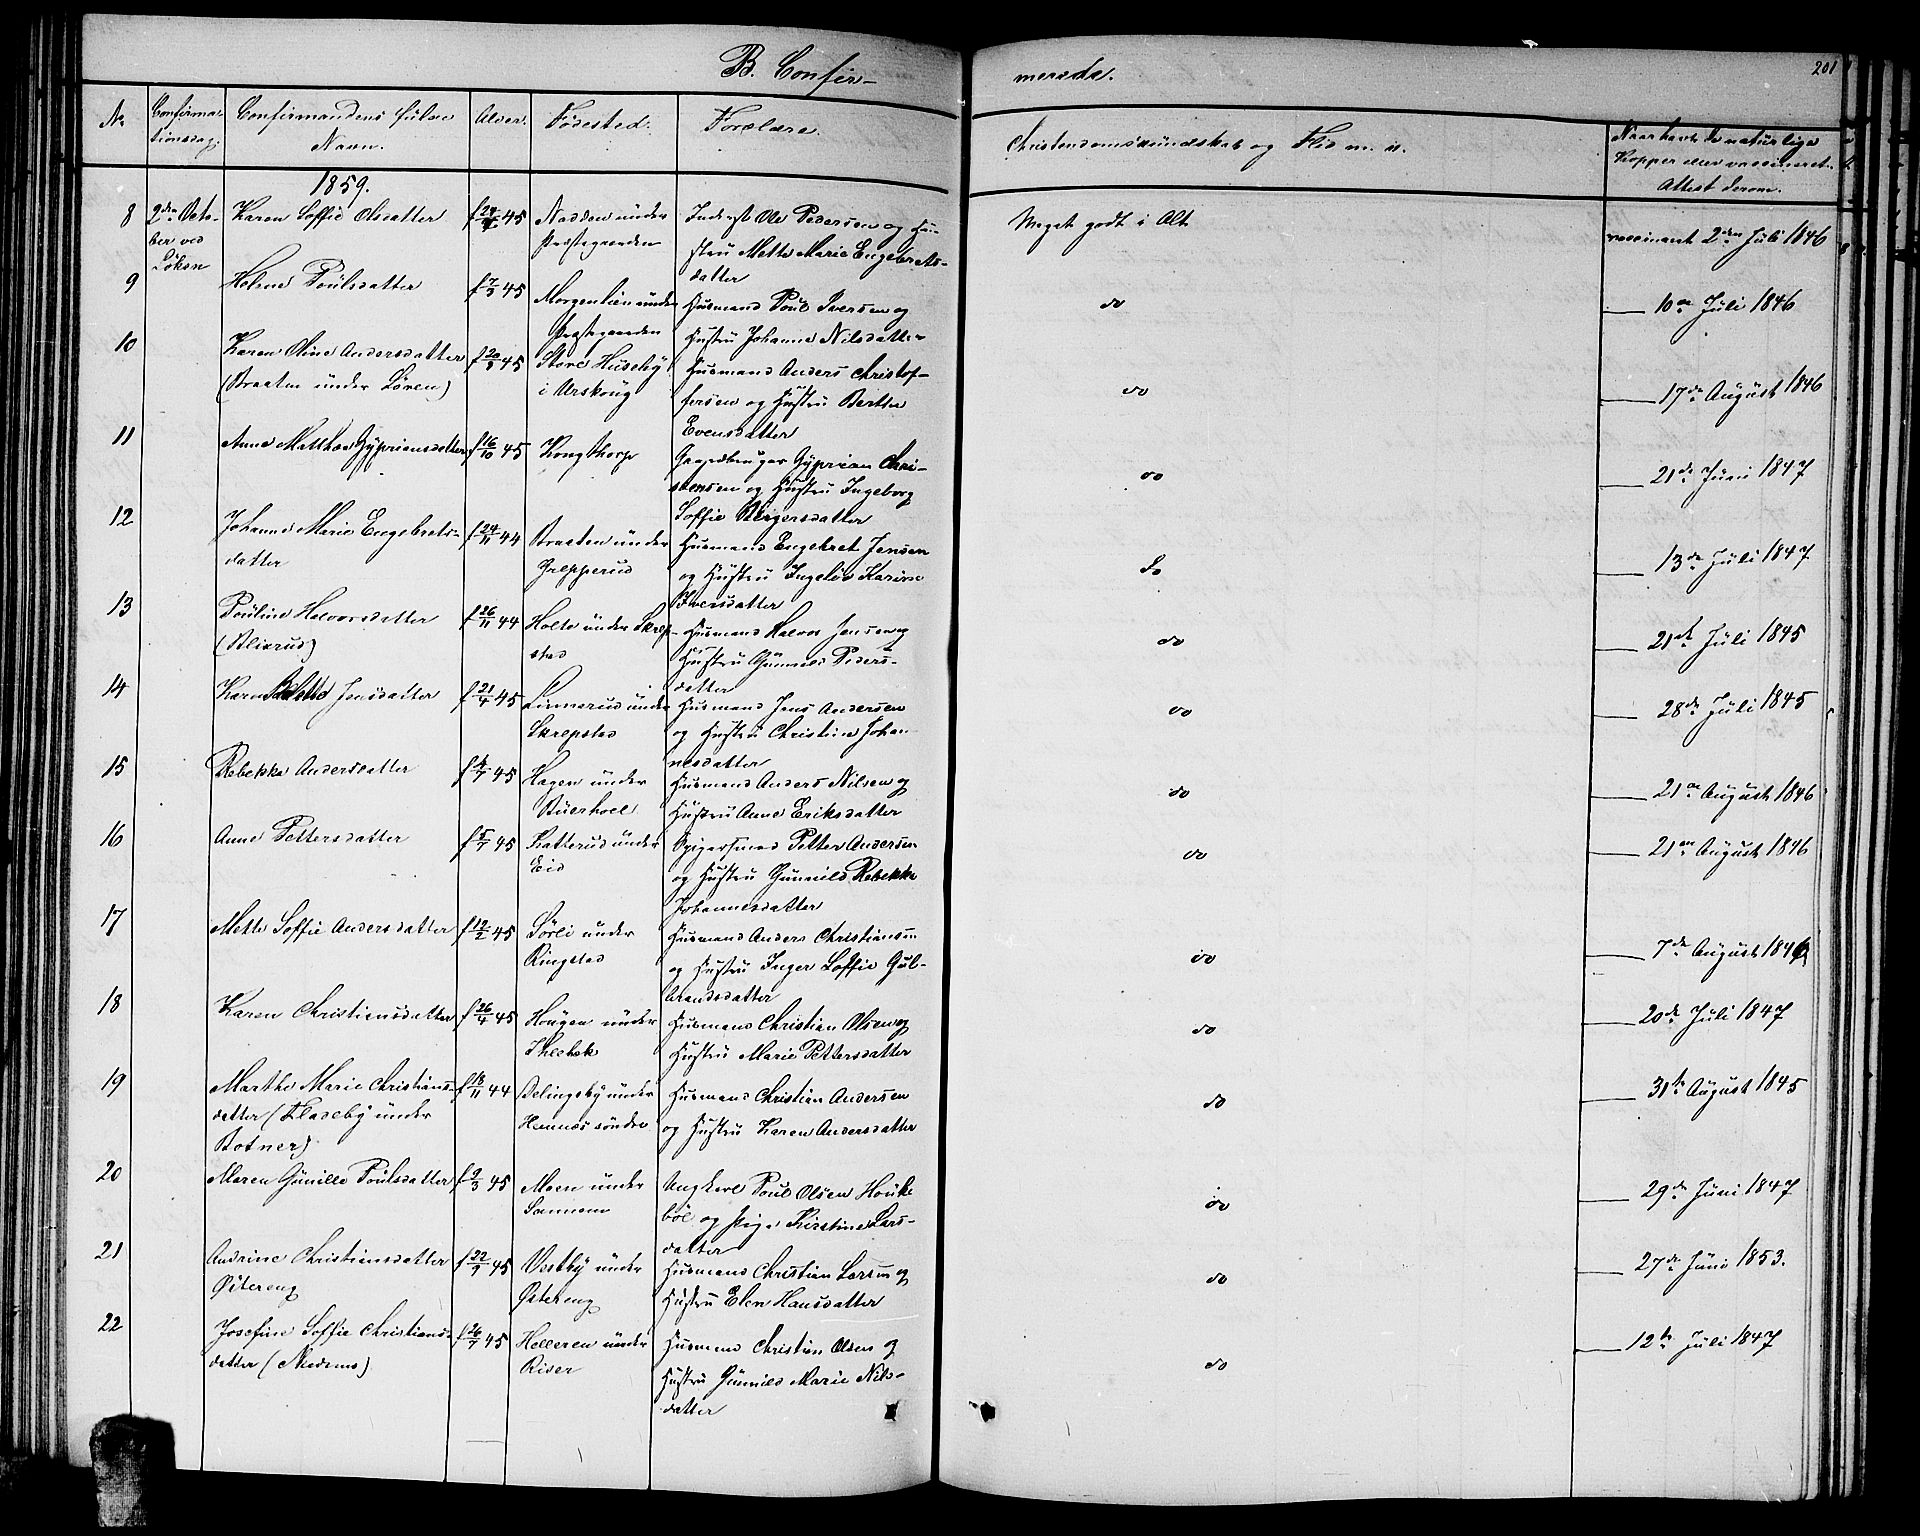 B. Confir-
merede.
201
No
Confirma-
tionsdag.
Confirmandens fulde
Navn.
Alder.
Fødested.
Forældre.
Christendomskundskab og Flid m. v.
Naar havt de naturlige
Kopper eller vaccineret.
Attest derom.
1859.
8 2den Octo-
ber ved
Løken
Karen Soffie Olsdatter
f 45
Nadden under
Præstegaarden
Inderst Ole Pedersen og Hu-
stru Mette Marie Engebrets-
datter
Meget godt i Alt
vaccineret 2den Juli 1846
9 Helene Poulsdatter
f 7/3 45
Morgenlien under
Præstegaarden
Husmand Poul Iversen og
Hustru Johanne Nilsdatter
do
10de Juli 1846
10 Karen Oline Andersdatter
(Braaten under Løren)
f 20/3 45
Store Huseby
i Urskoug
Husmand Anders Christof-
fersen og Hustru Berthe
Evensdatter
do
17de August 1846
11 Anne Mathea Gyprionsdatter
f 16/10 45
Kongthorp
Gaardbruger Gyprian Chri-
stensen og Hustru Ingeborg
Soffie Birgersdatter
do
21de Juni 1847
12 Johanne Marie Engebrets-
datter
f 24/11 44
Braaten under
Grepperud
Husmand Engebret Jensen
og Hustru Ingeborg Karine
Iversdatter
do
13de Juli 1847
13 Pouline Halvorsdatter
(Blixrud)
f 26/11 44
Holte under Skrep-
stad
Husmand Halvor Jensen og
Hustru Gunnild Peders-
datter
do
21de Juli 1845
14 Karen Jensdatter
f 21/4 45
Linnerud under
Skrepstad
Husmand Jens Andersen
og Hustru Christine Johan-
nesdatter
do
28de Juli 1845
15 Rebekka Andersdatter
f 4/7 45
Hagen under
Buerhoel
Husmand Anders Nilsen og
Hustru Anne Eriksdatter
do
21de August 1846
16 Anne Pettersdatter
f 5/7 45
Katterud under
Eid
Opigersmed Petter Andersen
og Hustru Gunnild Rebekka
Johannesdatter
do
21de August 1846
17 Mette Soffie Andersdatter
f 12/2 45
Sørli under
Ringstad
Husmand Anders Christiansen
og Hustru Inger Soffie Gul-
brandsdatter
do
7de August 1846
18 Karen Christiansdatter
f 26/4 45
Hougen under
Husmand Christian Olsen og
Hustru Marie Pettersdatter
do
20de Juli 1847
19 Marthe Marie Christians-
datter (Fladeby under
Botner)
f 18/11 44
Delingsby under
Hemnæs søndre
Husmand Christian Andersen
og Hustru Karen Andersdatter
do
31te August 1845
20 Maren Gunille Poulsdatter
f 9/3 45
Moen under
Sannem
Ungkarl Poul Olsen Houke
böl og Pige Kirstine Lars-
datter
do
29de Juni 1847
21 Andrine Christiansdatter
Østereng
f 22/9 45
Vestby under
Østereng
Husmand Christian Larsen og
Hustru Elen Hansdatter
do
27de Juni 1853.
22 Josefine Soffie Christians-
datter
f 26/7 45
Helleren under
Riser
Husmand Christian Olsen og
Hustru Gunnild Marie Nils-
datter
do
12te Juli 1847